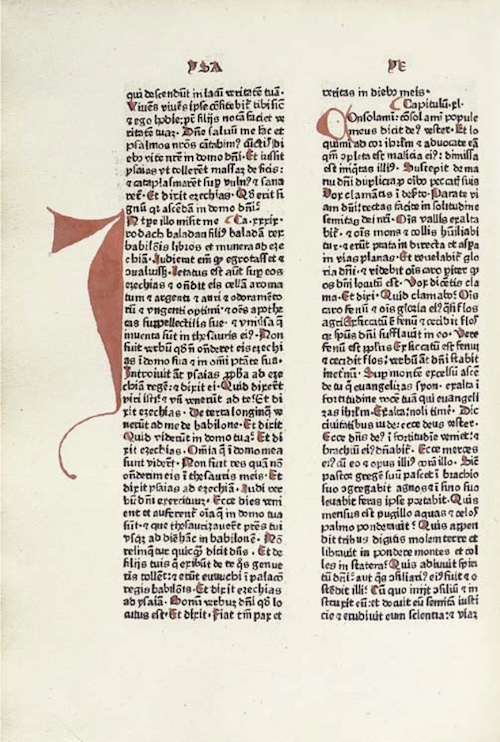 YSA YE
qui descendũt in lacũ veritatē tuã.
Viuēs viuēs ipse cōfitebit̃ tibi sicut
et ego hodie: pr̃ filijs notã faciet ve
ritatē tuaz. Dñe saluũ me fac et
psalmos nr̃os cãtabim⁹ cũctis di
ebꝫ vite nr̃e in domo dñi. Et iussit
ysaias vt tollerēt massaz de ficis:
⁊ cataplasmarēt suꝑ vuln⁹ ⁊ sana
ret̃. Et dixit ezechias. Qd̃ erit si
gnũ qꝛ ascedã in domo dñi.
IN tꝑe illo misit me Ca. xxxix.
rodach baladan fili⁹ baladã rex
babilōis libros et munera ad eze
chiã. Audierat em̃ ꝙ egrotasset ⁊
ↄualuiss̃. Letatus est aũt suꝑ eos
ezechias ⁊ oñdit eis cellã aroma
tum ⁊ argenti ⁊ auri ⁊ odoramēto
rũ ⁊ vngenti optimi: ⁊ oēs apothe
cas suppellectilis sue ⁊ vniũsa q̃
inuenta sũt in thesauris ei⁹. Non
fuit verbũ qd̃ nō onderet eis ezechi
as ī domo sua ⁊ in om̃i ptãte sua.
Introiuit aũt ysaias ꝓpha ad eze
chiã regē: ⁊ dixit ei. Quid dixerũt
viri isti? ⁊ vñ venerũt ad te? Et di
xit ezechias. De terra longinq̃ ve
nerũt ad me de babilone. Et dixit
Quid viderũt in domo tua? Et di
xit ezechias. Om̃ia q̃ ī domo mea
sunt viderũt. Non fuit res quã nō
onderim eis ī thesauris meis. Et
dixit ysaias ad ezechiã. Audi ver
bũ dñi exercituuz. Ecce dies veni
ent et auferent̃ oĩa q̃ in domo tua
sũt: ⁊ que thesaurizauerũt pr̃es tui
vsqꝫ ad diē hãc in babilonē. Nō
relinq̃tur quicq̃ dicit dñs. Et de
filijs tuis q̃ exibũt de te q̃s genue
ris tollent̃: ⁊ erũt eunuchi ī palacō
regis babilōis. Et dixit ezechias
ad ysaiã. Bonũ verbuz dñi qd̃ lo
cutus est. Et dixit. Fiat tm̃ pax et
veritas in diebꝫ meis.
Capitulũ. xl.
COnsolami: cōsolami popule
meus dicit de⁹ vester. Et lo
quimĩ ad cor ihrlm̃ ⁊ aduocate eã
qm̃ ↄpleta est malicia ei⁹: dimissa
est iniq̃tas illi⁹. Suscepit de ma
nu dñi duplicia ꝓ oĩbꝫ pec̃cis suis
Vox clamãtis ī deẜto. Parate vi
am dñi: rectas facite in solitudine
semitas dei nr̃i. Oĩs vallis exalta
bit̃: ⁊ oĩs mons ⁊ collis hũiliabi
tur: ⁊ erũt praua in directa et aspa
in vias planas. Et reuelabit̃ glo
ria dñi: ⁊ videbit oĩs caro piter qꝫ
os dñi locutũ est. Vox dicētis cla
ma. Et dixi. Quid clamabo? Oĩs
caro fenũ ⁊ oĩs gloria ei⁹ q̃si flos
agri. Exsiccatũ ē fenũ ⁊ cecidit flos
qꝛ spũs dñi sufflauit in eo. Vere
fenũ est ꝓplus. Exsiccatũ est fenũ
⁊ cecidit flos: verbũ aũt dñi stabit
inet̃nũ. Suꝑ montē excelsũ ascē
de tu q̃ euangelizas syon. exalta ī
fortitudine vocē tuã qui euangeli
zas ihrlm̃. Exalta: noli timē. Dic
ciuitatibus iude: ecce deus vester.
Ecce dñs de⁹ ī fortitudīe veniet: ⁊
brachiũ ei⁹ dñabit̃. Ecce merces
ei⁹ cũ eo ⁊ opus illi⁹ corã illo. Sic̃
pastor gregē suũ pascet ī brachio
suo ↄgregabit agnos ⁊ ī sino suo
leuabit fetas ipse portabit. Quis
mensus est pugillo aquas ⁊ celos
palmo ponderauit? Quis appen
dit tribus digitis molem terre et
librauit in pondere montes et col
les in statera? Quis adiuuit spiri
tũ dñi? aut q̃s ↄsiliari⁹ ei⁹ fuit ⁊ o
stēdit illi? Cũ quo inijt ↄsiliũ ⁊ in
struxit eũ: et docuit eũ semitã iusti
cie ⁊ erudiuit eum scientia: ⁊ viaz